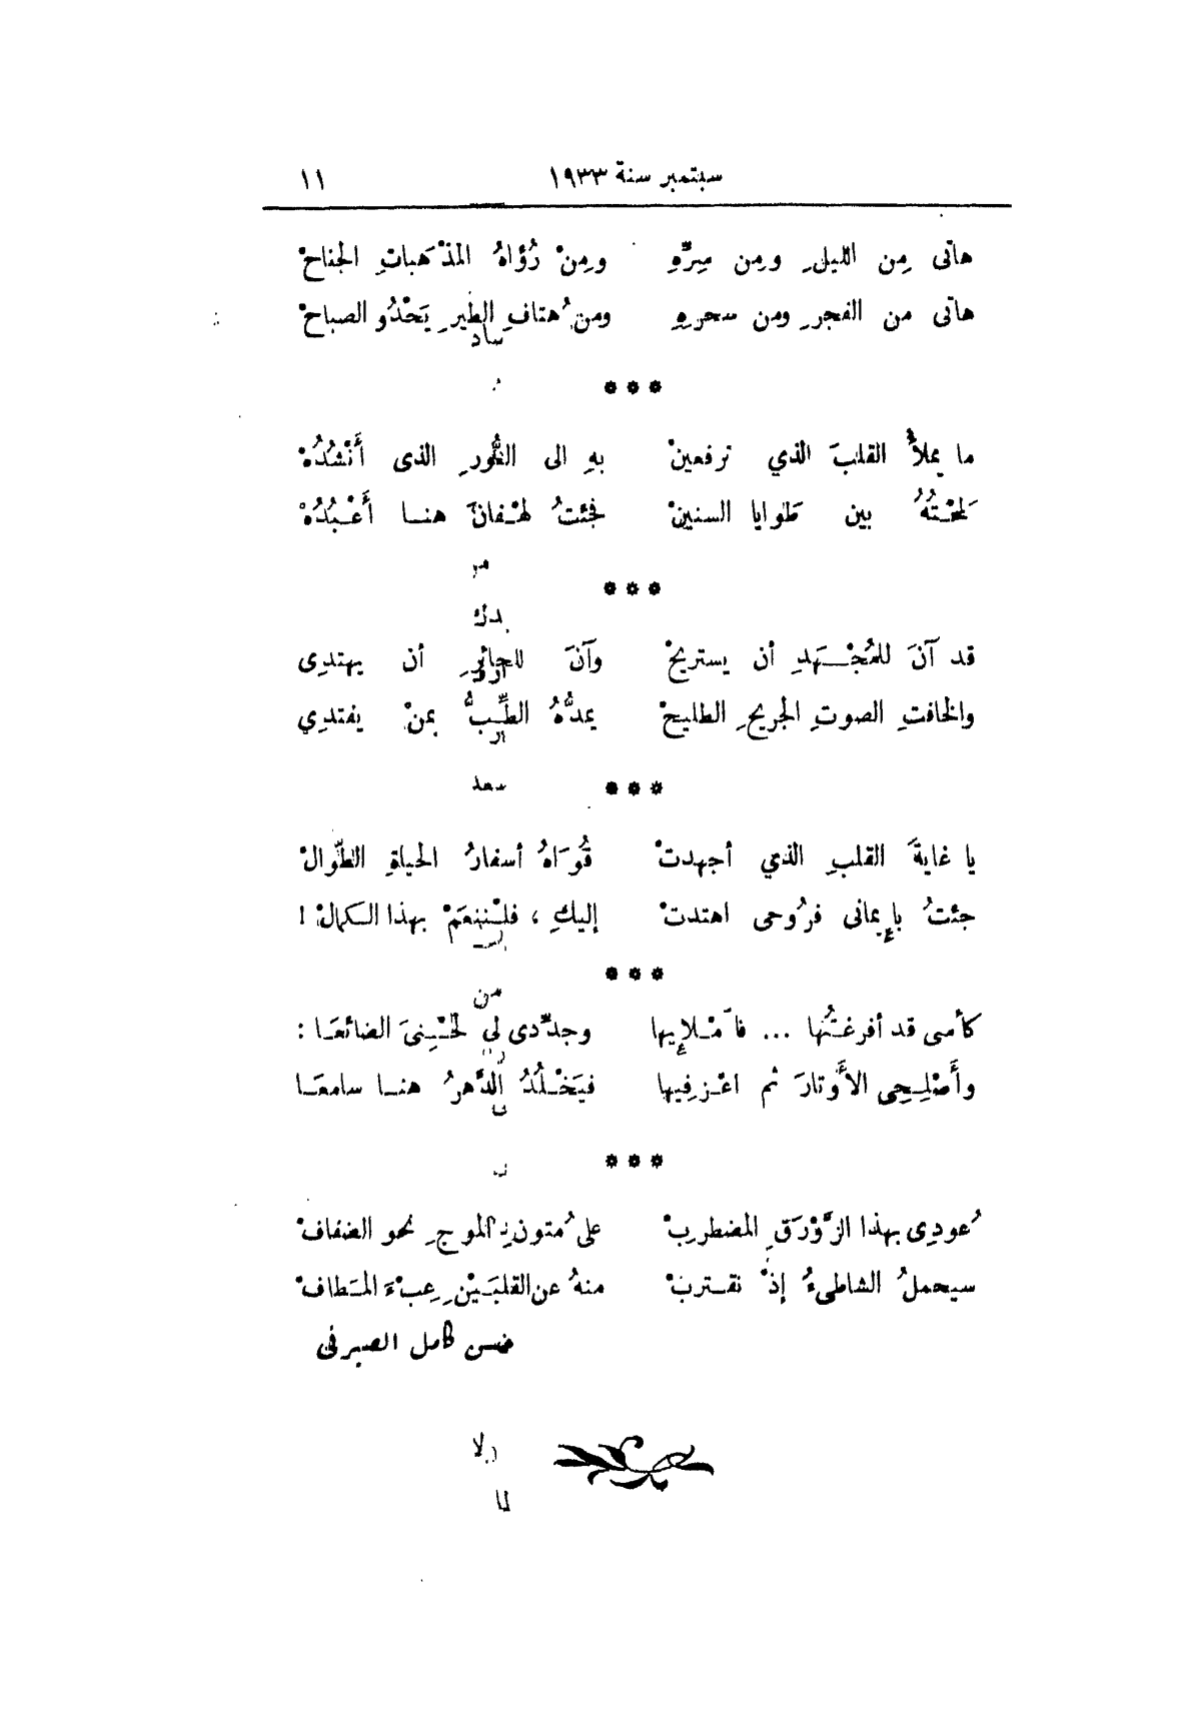 سبتمبر سنة ١٩٣٣ ١١
هاتى مِن الليلِ ومِن سِرِّهِ ومِنْ رُؤاهُ المذْهَباتِ الجناحْ
هاتى من الفجرِ ومن سحرِهِ ومن هُتافِ الطيرِ يَحْدُو الصباحْ
***
ما يملأُ القلبَ الذي ترفعينْ بهِ الى النُّورِ الذى أَنْشُدُهْ
لَمَحْتُهُ بين طَوايا السنينْ فجئتُ لهْفانَ هنا أَعْبُدُهْ
***
قد آنَ للمُجْهَدِ أن يستريحْ وآنَ للحائرِ أن يهتدِى
والخافتِ الصوتِ الجريحِ الطليحْ يمدُّهُ الطِّبُّ بمنْ يفتدِي
***
يا غايةَ القلبِ الذي أجهدتْ قُوَاهُ أسفارُ الحياةِ الطِّوالْ
جئتُ بإِيمانى فرُوحى اهتدتْ إليكِ ، فلْننعَمْ بهذا الكمالْ !
***
كأسى قد أفرغتُها ... فامْلإِيها وجدِّدى لي لحْنِىَ الضائعَا :
وأَصْلِحِى الأَوْتارَ ثم اعْزِفِيها فيَخْلُدُ الدَّهرُ هنا سامعَا
***
عُودِى بهذا الزَّوْرَقِ المضطرِبْ على مُتونِ الموجِ نحو الضفافْ
سيحملُ الشاطىءُ إذْ نقتربْ منهُ عن القلبَيْنِ عِبْءَ المَطافْ
حسن كامل الصيرفى